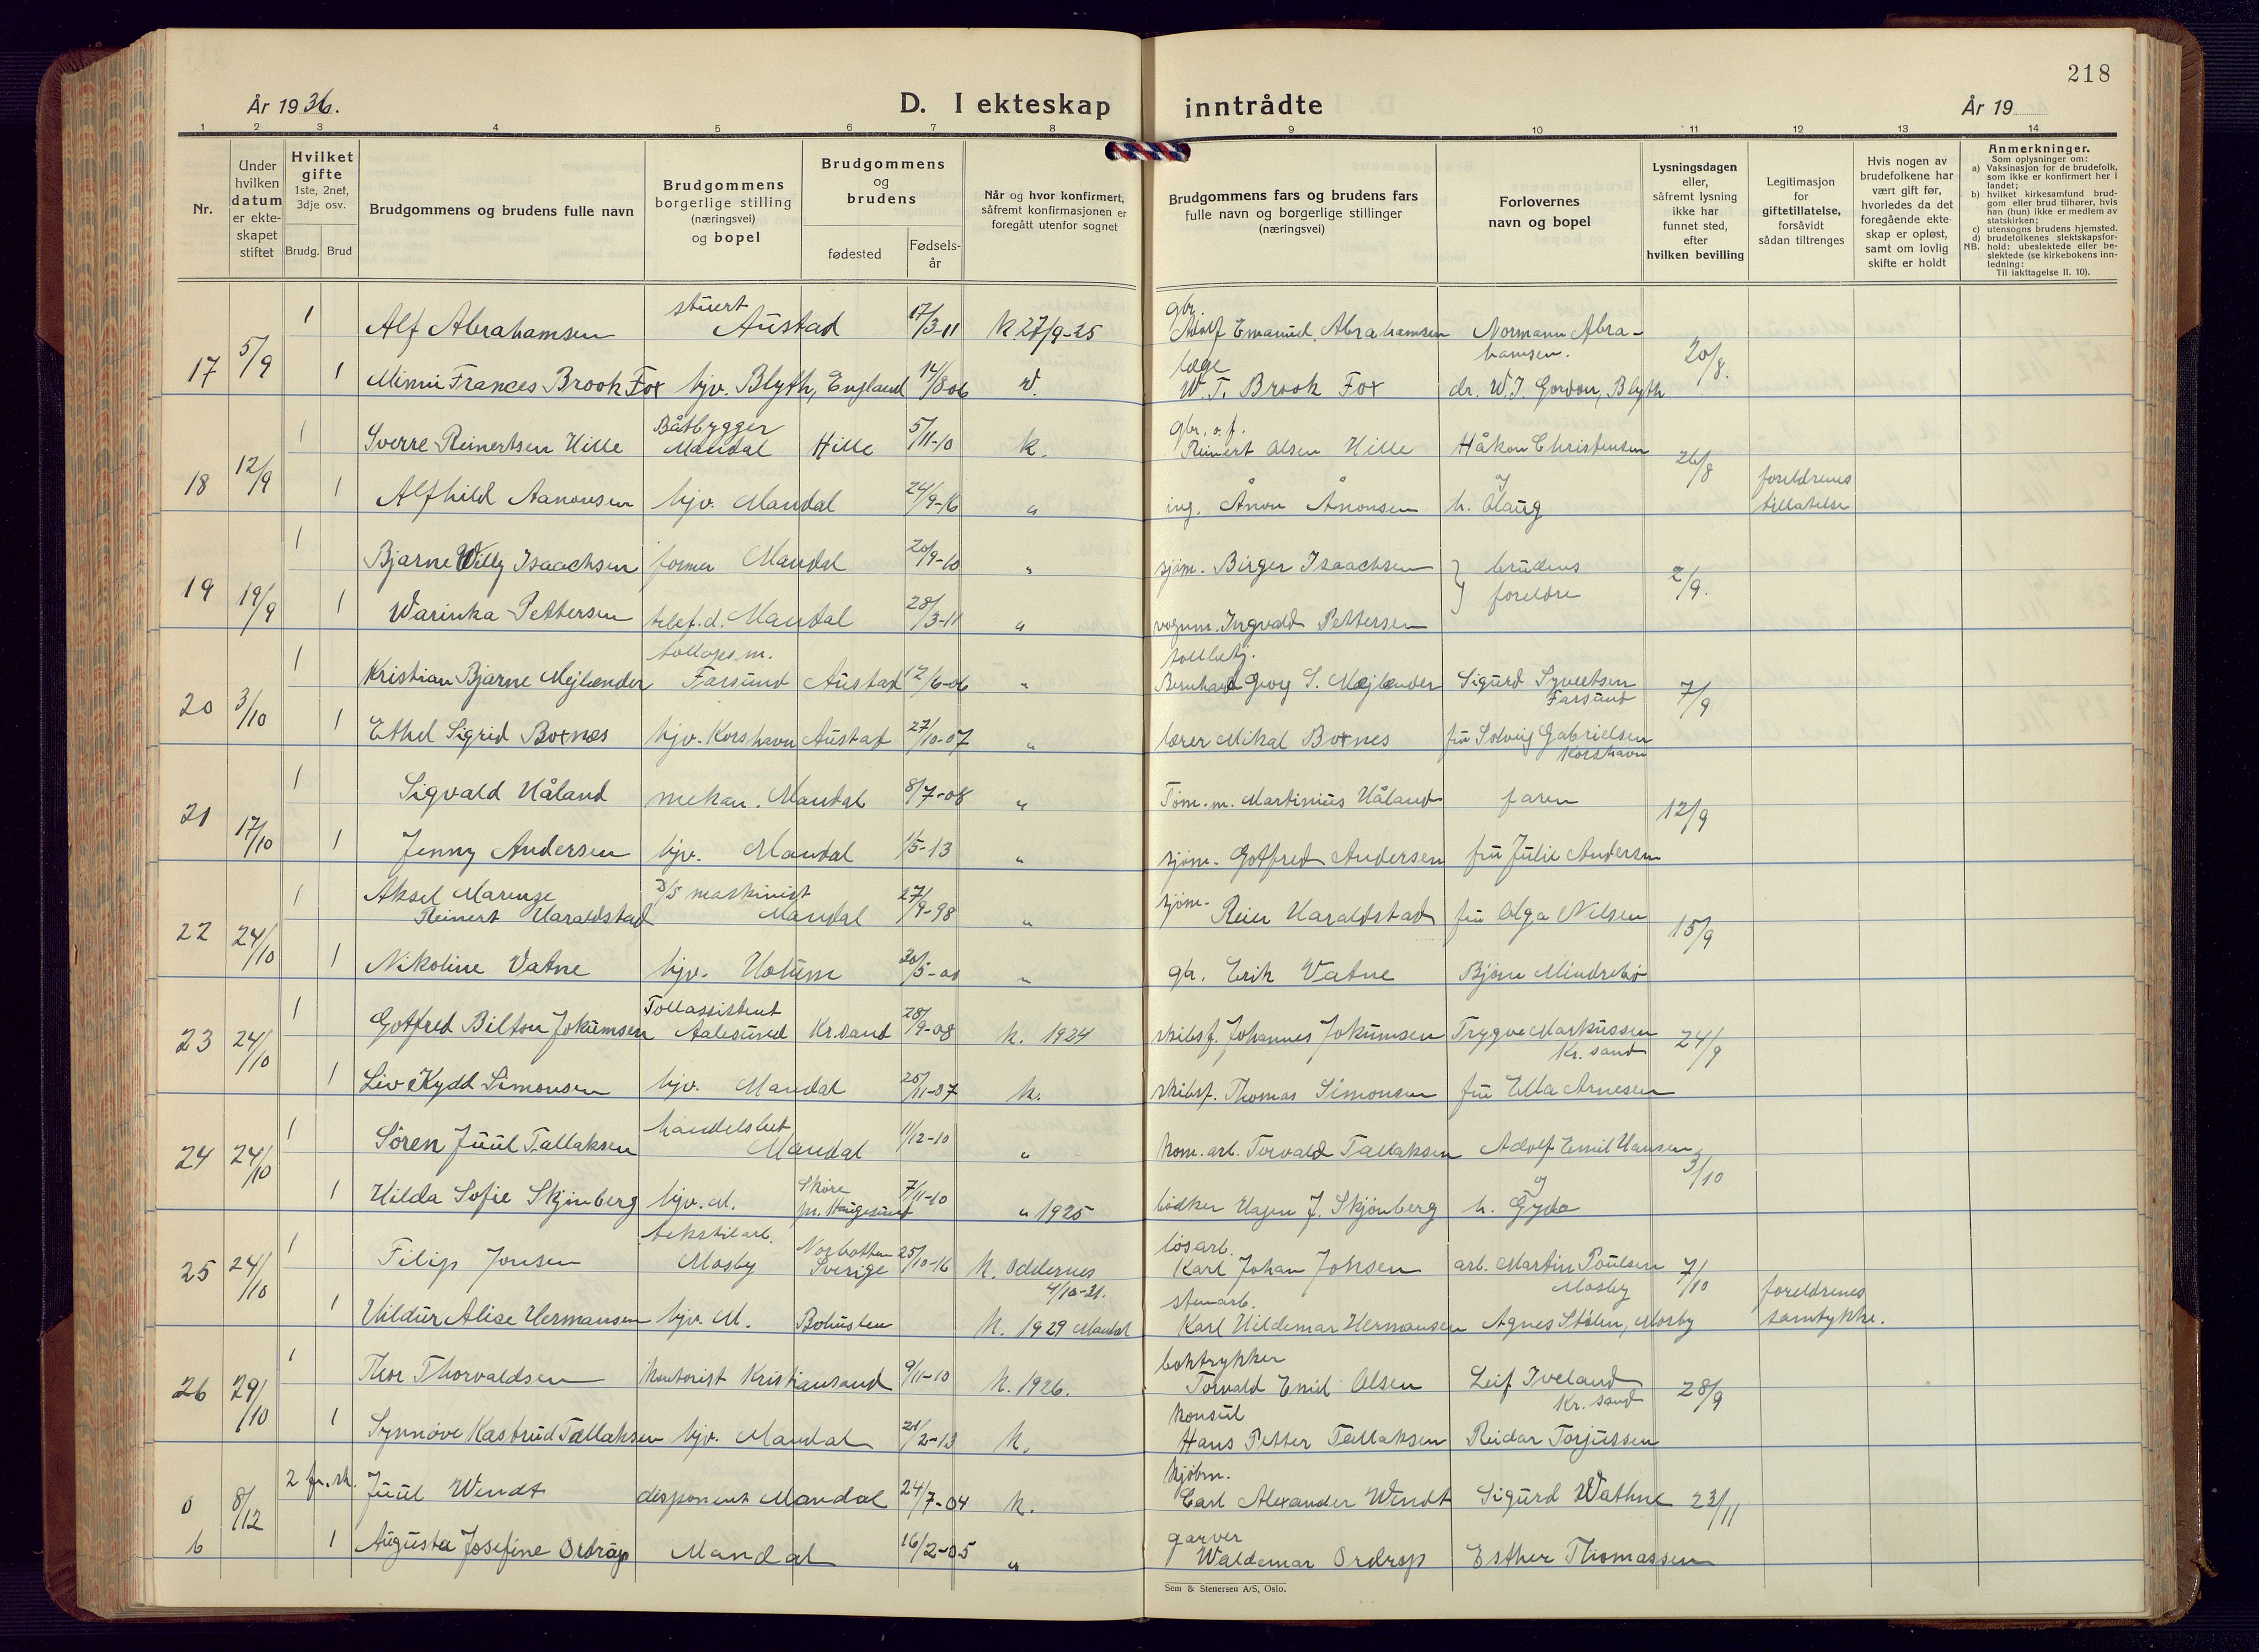 218
År 1936.
D. I ekteskap inntrådte
År 19
1 2 3 4 5 6 7 8 9 10 11 12 13 14
Nr.
Under hvilken datum er ekteskapet stiftet
Hvilket gifte
1ste, 2net, 3dje osv.
Brudg. Brud
Brudgommens og brudens fulle navn
Brudgommens borgerlige stilling (næringsvei) og bopel
Brudgommens og brudens
fødested
Fødselsår
Når og hvor konfirmert, såfremt konfirmasjonen er foregått utenfor sognet
Brudgommens fars og brudens fars fulle navn og borgerlige stillinger (næringsvei)
Forlovernes navn og bopel
Lysningsdagen eller, såfremt lysning ikke har funnet sted, efter hvilken bevilling
Legitimasjon for giftetillatelse, forsåvidt sådan tiltrenges
Hvis nogen av brudefolkene har vært gift før, hvorledes da det foregående ekteskap er opløst, samt om lovlig skifte er holdt
Anmerkninger.
Som oplysninger om:
a) Vaksinasjon for de brudefolk, som ikke er konfirmert her i landet;
b) hvilket kirkesamfund brudgom eller brud tilhører, hvis han (hun) ikke er medlem av statskirken;
c) utensogns brudens hjemsted.
d) brudefolkenes slektskapsforhold: ubeslektede eller beslektede (se kirkebokens innledning:
NB. Til iakttagelse II. 10).
17 5/9 1 Alf Abrahamsen stuert Austad 17/3-11 k. 27/9-25 gbr. Adolf Emanuel Abrahamsen Normann Abrahamsen. 20/8.
1 Minni Frances Brook Fox hjv. Blyth, England 14/8 06 læge W. T. Brook Fox dr. W. J. Gordon, Blyth
18 12/9 1 Sverre Reinertsen Hille Båtbygger Mandal Hille 5/11-10 k. gbr. o. f. Reinert Olsen Hille Håkon Christensen 26/8 foreldrenes tillatelse
1 Alfhild Aanonsen hjv. Mandal 24/9-16 " ing. Ånon Ånonsen og h. Olaug
19 19/9 1 Bjarne Willy Isaachsen former Mandal 20/9-10 " sjøm. Birger Isaachsen } brudens foreldre 2/9.
1 Warinka Pettersen telef.d. Mandal 28/3-11 " vognm. Ingvald Pettersen
20 3/10 1 Kristian Bjarne Mejlænder tollops.m. Farsund Austad 12/6-06 " tollbetj. Bernhard Georg S. Mejlænder Sigurd Syvertsen Farsund 7/9
1 Ethel Sigrid Boxnæs hjv. Korshavn Austad 27/10-07 " lærer Mikal Boxnes fru Solveig Gabrielsen Korshavn
21 17/10 1 Sigvald Håland mekan. Mandal 8/7-08 " Tøm.m. Martinius Håland faren 12/9
1 Jenny Andersen hjv. Mandal 1/5-13 " sjøm. Gotfred Andersen fru Julie Andersen
22 24/10 1 Aksel Marenze Reinert Haraldstad D/S maskinist Mandal 27/9-98 " sjøm. Reier Haraldstad fru Olga Nilsen 15/9
1 Nikoline Vatne hjv. Holum 30/5-00 " gbr. Erik Vatne Bjørn Mindrebø
23 24/10 1 Gotfred Bilton Jokumsen Tollassistent Aalesund Kr.sand 28/9-08 k. 1924 skibsf. Johannes Jokumsen Trygve Markussen Kr. sand 24/9
1 Liv Kydd Simonsen hjv. Mandal 25/11-07 k. skibsf. Thomas Simonsen fru Ella Arnesen
24 24/10 1 Sören Juul Tallaksen handelsbet Mandal 11/12-10 " kom. arb. Torvald Tallaksen Adolf Emil Hansen 3/10
1 Hilda Sofie Skjønberg hjv. M. Skåre pr. Haugesund 7/11-10 " 1925 bødker Hagen J. Skjønberg og h. Gyda
25 24/10 1 Filip Jonsen tekstilarb. Mosby Norbotten Sverige 25/10-16 k. Oddernes 4/10-31. løsarb. Karl Johan Johsen arb. Martin Poulsen Mosby 7/10 foreldrenes samtykke.
1 Hildur Alise Hermansen hjv. M. Bohuslen k. 1929 Mandal stenarb. Karl Hildemar Hermansen Agnes Stølen, Mosby
26 29/10 1 Thor Thorvaldsen kontorist Kristiansand 9/11-10 k. 1926. boktrykker Torvald Emil Olsen Leif Iveland Kr. sand 28/9
1 Synnøve Kastrud Tallaksen hjv. Mandal 21/2-13 k. konsul Hans Petter Tallaksen Reidar Torjussen
0 8/12 2 fr. sk. Juul Wendt disponent Mandal 24/7-04 k. kjøbm. Carl Alexander Wendt Sigurd Wathne 23/11
b 1 Augusta Josefine Ordrop Mandal 16/2-05 " garver Waldemar Ordrop Esther Thomassen
Sem & Stenersen A/S, Oslo.